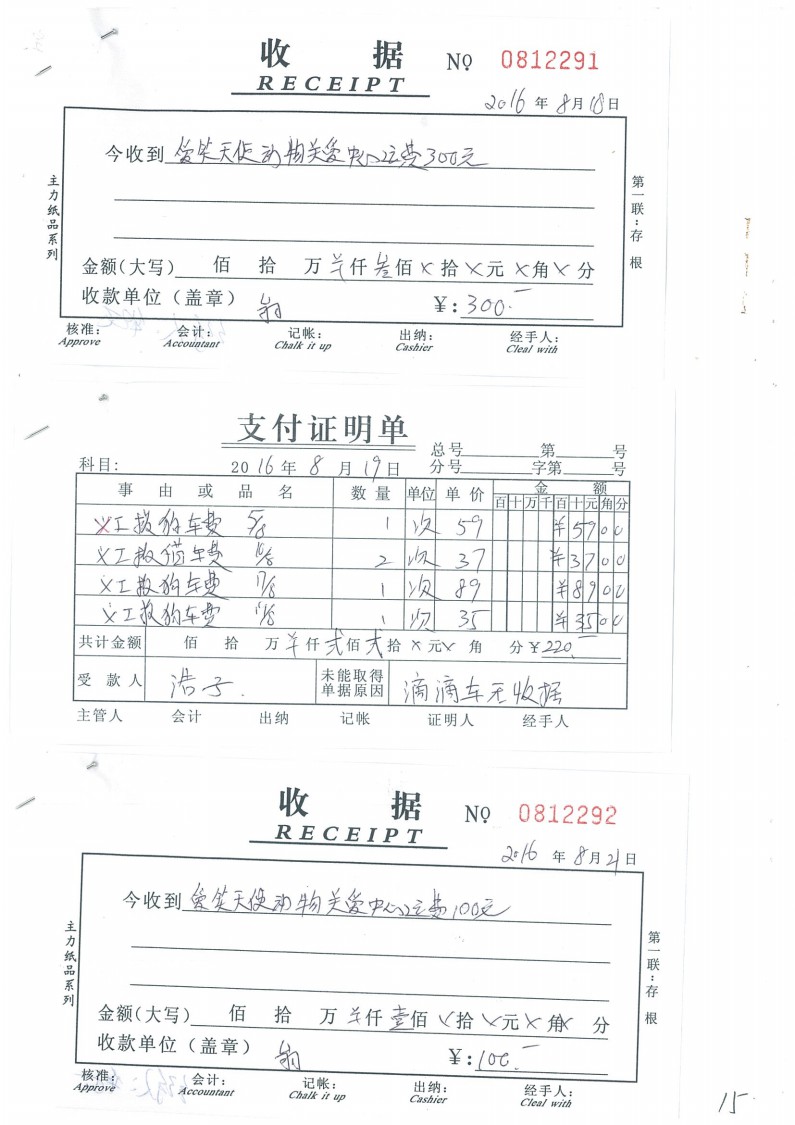 收 据 № 0812291
RECEIPT
2016 年 8月 18日
今收到 爱笑天使动物关爱中心运费300元
金额(大写) 佰 拾 万 羊仟 叁佰 × 拾 × 元 × 角 × 分
收款单位（盖章） ¥:300.-
核准: 会计: 记帐: 出纳: 经手人:
Approve Accountant Chalk it up Cashier Cleal with
主力纸品系列
第一联:存根
支付证明单
总号 第 号
科目: 2016年 8 月 19日 分号 字第 号
事 由 或 品 名 数 量 单位 单 价 金 额
百 十 万 千 百 十 元 角 分
义工拔狗车费 5/8 1 次 59 ¥5900
义工拔猫车费 16/8 2 次 37 ¥3700
义工拔狗车费 17/8 1 次 89 ¥8900
义工拔狗车费 1 次 35 ¥3500
共计金额 佰 拾 万 羊仟 贰佰 贰拾 × 元 × 角 分 ¥220.-
受 款 人 浩子. 未能取得单据原因 滴滴车无收据
主管人 会计 出纳 记帐 证明人 经手人
收 据 № 0812292
RECEIPT
2016 年 8月 21日
今收到 爱笑天使动物关爱中心运费100元
金额(大写) 佰 拾 万 羊仟 壹佰 × 拾 × 元 × 角 × 分
收款单位（盖章） ¥:100.-
核准: 会计: 记帐: 出纳: 经手人:
Approve Accountant Chalk it up Cashier Cleal with
主力纸品系列
第一联:存根
15